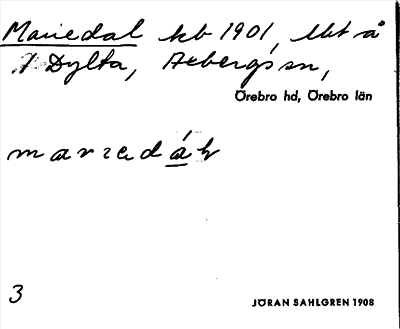 Mariedal kb 1901, lht å
1 Dylta, Axbergs sn,
Örebro hd, Örebro län
marıedáł
3
JÖRAN SAHLGREN 1908